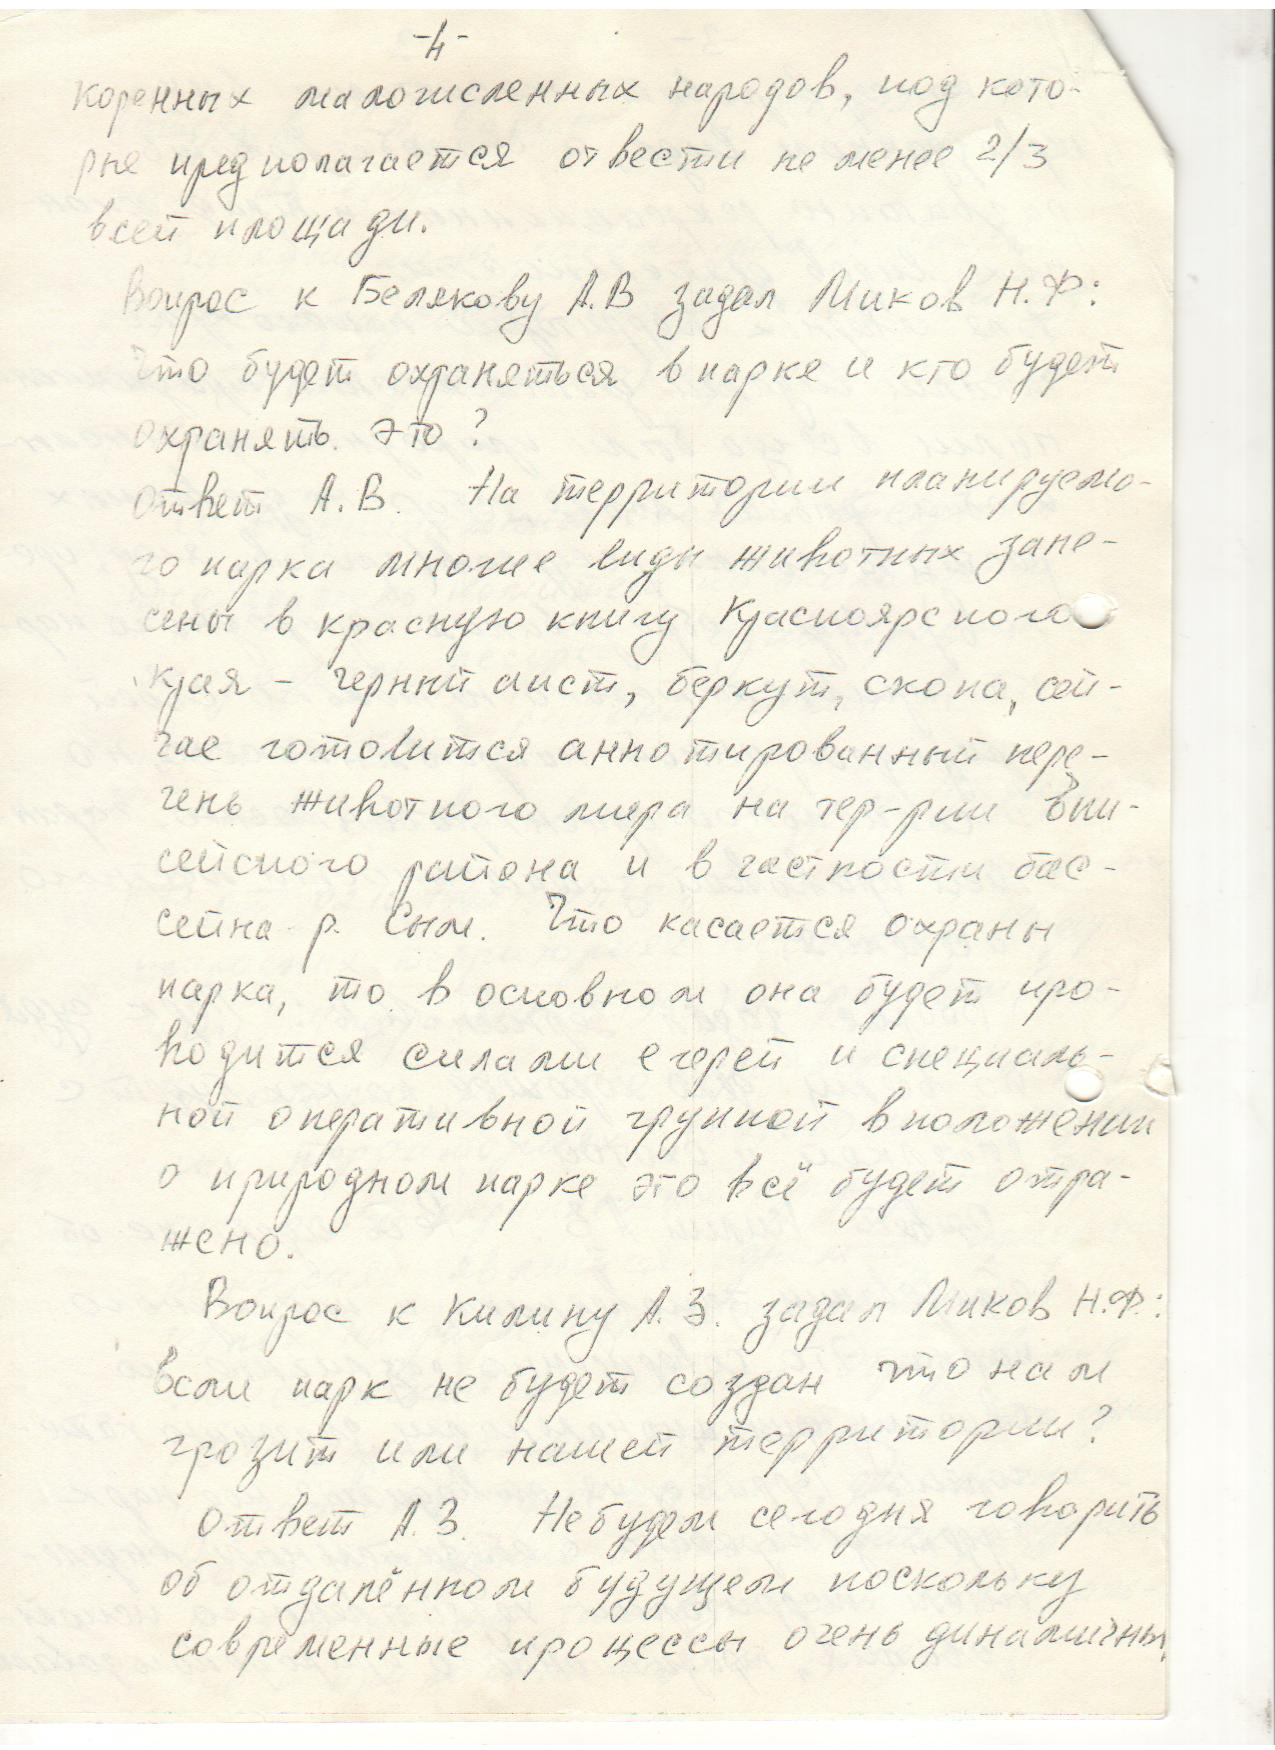 -4-
коренных малочисленных народов, под кото-
рые предполагается отвести не менее 2/3
всей площади.
Вопрос к Белякову А.В задал Миков Н.Ф:
Что будет охраняться в парке и кто будет
охранять это?
Ответ А.В. На территории планируемо-
го парка многие виды животных зане-
сены в красную книгу Красноярского
края – черный аист, беркут, скопа, сей-
час готовится аннотированный пере-
чень животного мира на тер-рии Ени-
сейского района и в частности бас-
сейна р. Сым. Что касается охраны
парка, то в основном она будет про-
водится силами егерей и специаль-
ной оперативной группой в положении
о природном парке это всё будет отра-
жено.
Вопрос к Килину А.З. задал Миков Н.Ф.:
Если парк не будет создан что нам
грозит или нашей территории?
Ответ А.З. Не будем сегодня говорить
об отдалённом будущем поскольку
современные процессы очень динамичны,